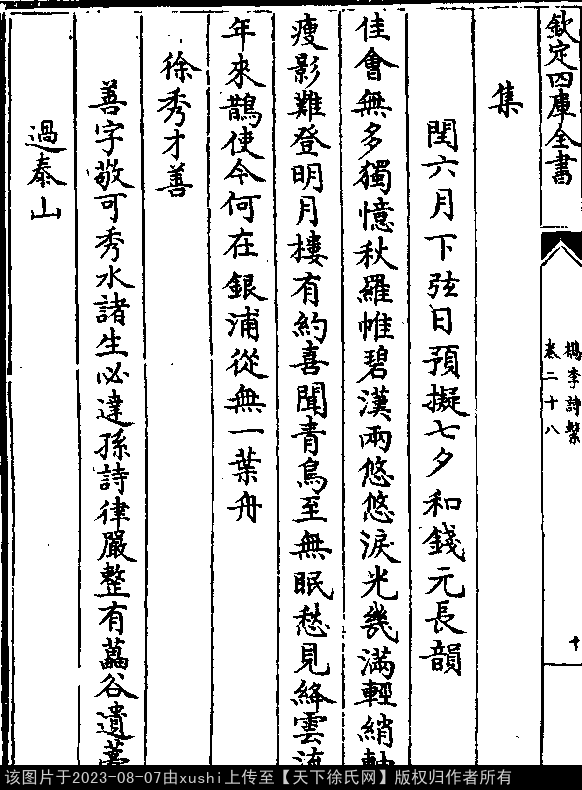 欽定四庫全書
檇李詩繫
卷二十八
十
集
閏六月下弦日預擬七夕和錢元長韻
佳會無多獨憶秋羅帷碧漢兩悠悠淚光幾滿輕綃
瘦影難登明月樓有約喜聞青鳥至無眠愁見絳雲
年來鵲使今何在銀浦從無一葉舟
徐秀才善
善字敬可秀水諸生必達孫詩律嚴整有藟谷遺
過泰山
该图片于2023-08-07由xushi上传至【天下徐氏网】版权归作者所有